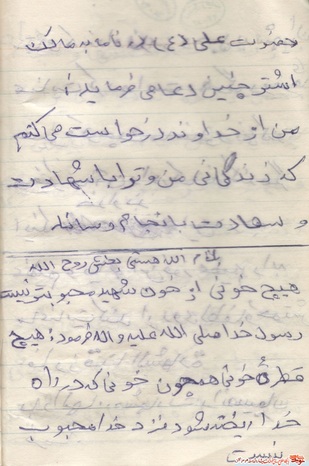 حضرت علی (ع) در نامه به مالک
اشتر چنین دعا می فرماید:
من از خداوند درخواست می کنم
که زندگانی من و تو را با شهادت
و سعادت به انجام رساند
هیچ خونی از خون شهید محبوبتر نیست
رسول خدا صلی الله علیه و اله فرمود: هیچ
قطرهٔ خونی همچون خونی که در راه
خدا ریخته شود نزد خدا محبوب
نیست